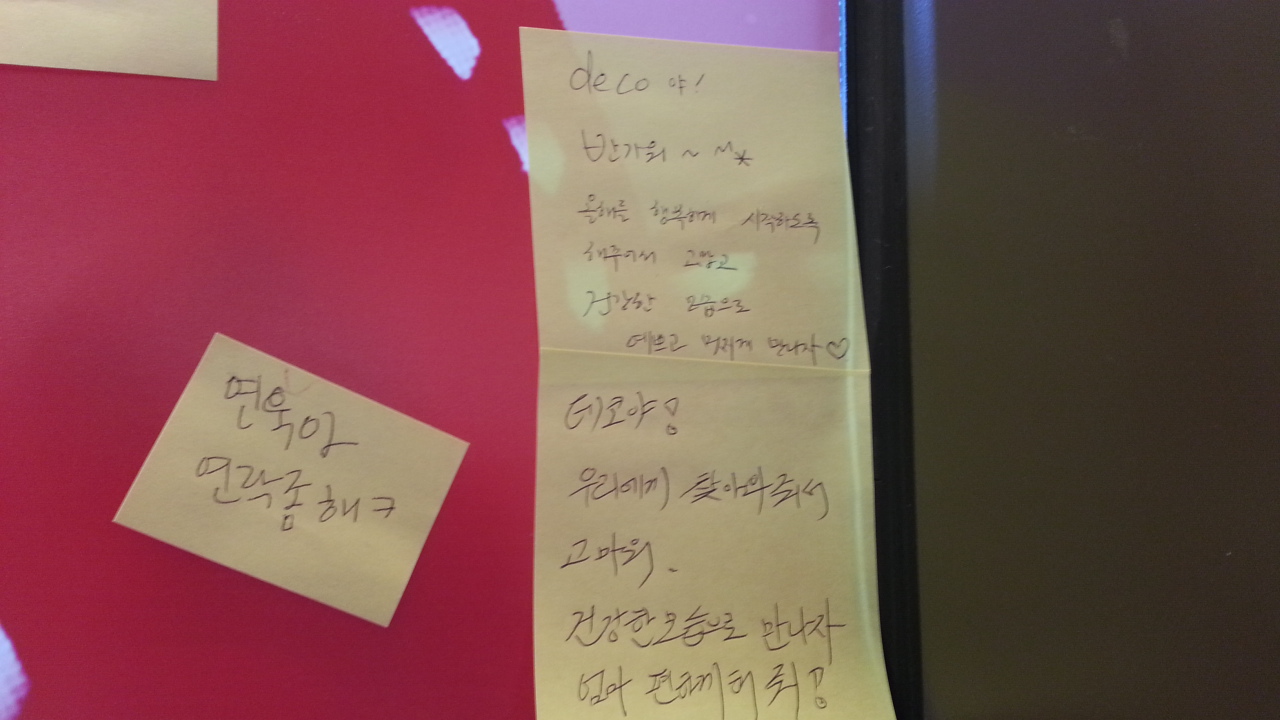 deco 야!
반가워 ~ ^^*
올해를 행복하게 시작하도록
해주어서 고맙고
건강한 모습으로
예쁘고 멋지게 만나자♡
데코야!
우리에게 찾아와줘서
고마워.
건강한 모습으로 만나자
엄마 편하게 해 줘!
연욱아
연락좀해ㅋ